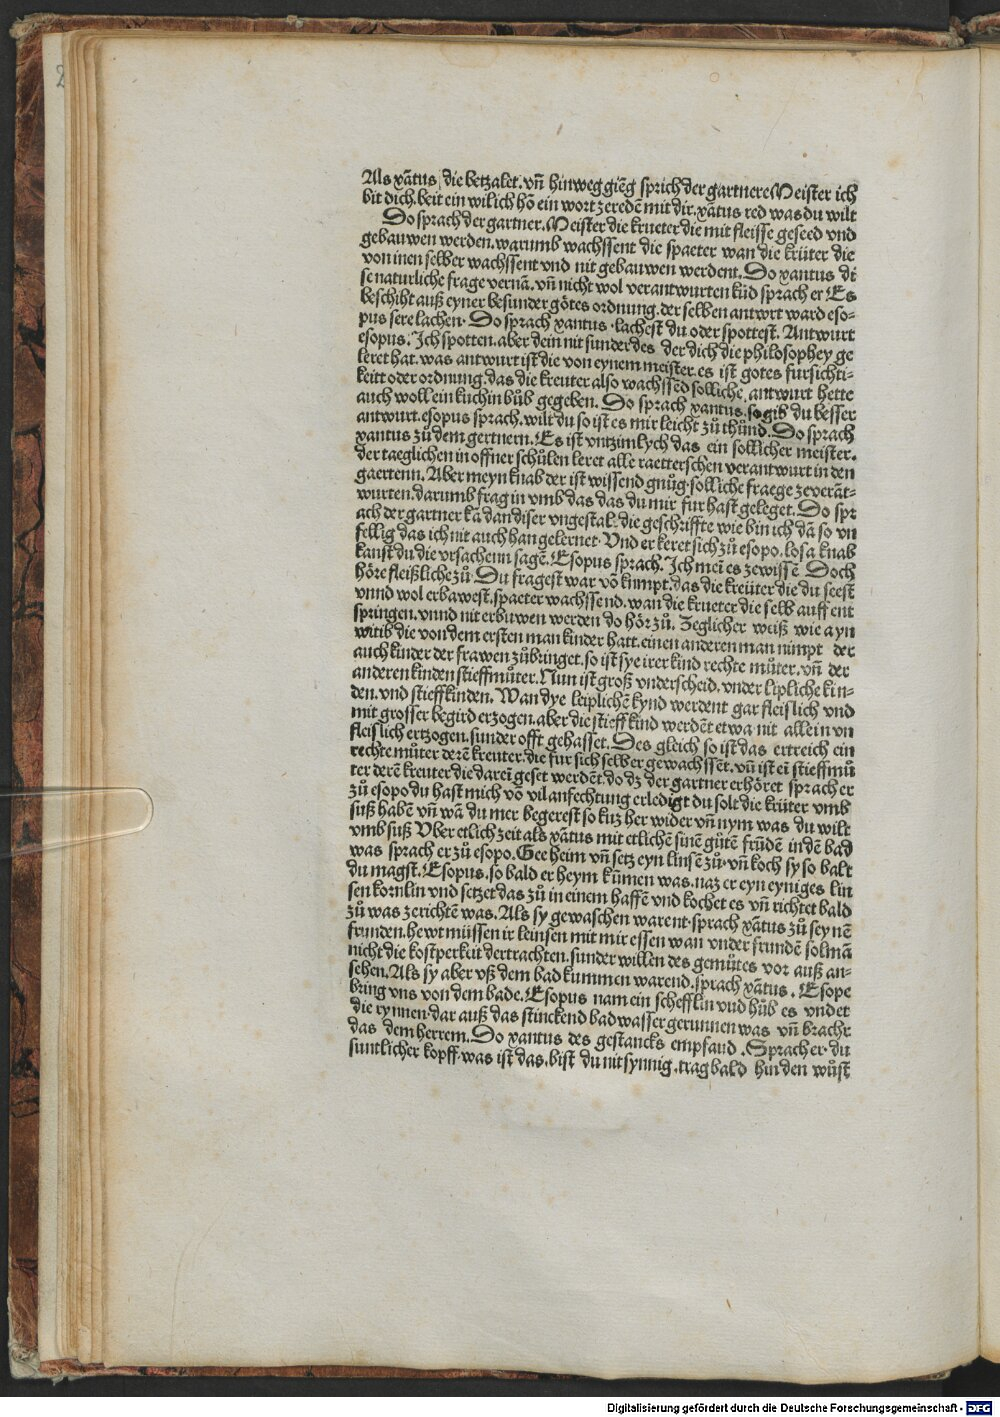 Als xãtus die betzalet. vñ hinweg giẽg sprich der gartnere Meister ich
bit dich. beit ein wilich hõ ein wort zeredẽ mit dir. xãtus red was du wilt
Do sprach der gartner. Meister die krueter die mit fleisse geseed vnd
gebauwen werden. warumb wachssent die spaeter wan die krüter die
von inen selber wachssent vnd nit gebauwen werdent. Do xantus di
se naturliche frage vernã. vñ nicht wol verantwurten kũd sprach er Es
beschiht auß eyner besunder götes ordnung. der selben antwrt ward eso-
pus sere lachen. Do sprach xantus. lachest du oder spottest. Antwurt
esopus. Ich spotten. aber dein nit sunder des der dich die philosophey ge
leret hat. was antwurt ist die von eynem meister. es ist gotes fursichti-
keitt oder ordnung. das die kreuter also wachssẽd solliche antwurt hette
auch woll ein kuchin bůb gegeben. Do sprach xantus. so gib du besser
antwurt. esopus sprach. wilt du so ist es mir leicht zů thůnd. Do sprach
xantus zů dem gertnern. Es ist vntzimlych das ein sollicher meister.
der taeglichen in offner schůlen leret alle raetterschen verantwurt in den
gaertenn. Aber meyn knab der ist wissend gnůg. solliche fraege zeverãt-
wurten. darumb frag in vmb das das du mir fur hast geleget. Do spr
ach der gartner kã dan diser vngestal. die geschriffte wie bin ich dã so vn
fellig das ich nit auch han gelernet. Vnd er keret sich zů esopo. losa knab
kanst du die vrsachenn sagẽ. Esopus sprach. Ich mei es zewissẽ Doch
höre fleißliche zů. Du fragest war võ kumpt. das die kreüter die du seest
vnnd wol erbawest. spaeter wachssend. wan die krueter die selb auff ent
springen. vnnd nit erbuwen werden do hör zů. Zeglicher weiß wie ayn
witib die von dem ersten man kinder hatt. einen anderen man nimpt der
auch kinder der frawen zůbringet. so ist sye irer kind rechte můter. vñ der
anderen kinden stieffmůter. Nun ist groß vnderscheid. vnder lipliche kin-
den. vnd stieffkinden. Wan dye leiplichẽ kynd werdent gar fleislich vnd
mit grosser begird erzogen. aber die stieff kind werdẽt etwa nit allein vn
fleislich ertzogen. sunder offt gehasset. Des gleich so ist das ertreich ein
rechte můter derẽ kreuter. die fur sich selber gewachssẽt. vñ ist eĩ stieffmů
ter derẽ kreuter die dareĩ geset werdẽt. do dz der gartner erhöret sprach er
zů esopo du hast mich võ vil anfechtung erlediget du solt die krüter vmb
suß habẽ vñ wã du mer begerest so kuz her wider vñ nym was du wilt
vmb suß Vber etlich zeit als xãtus mit etlichẽ sinẽ gůtẽ frũdẽ in dẽ bad
was sprach er zů esopo. Gee heim vñ setz eyn linsẽ zů. vñ koch sy so balt
du magst. Esopus. so bald er heym kũmen was. naz er eyn eyniges lin
sen kornlin vnd setzet das zů in einem haffẽ vnd kochet es vñ richtet bald
zů was zerichtẽ was. Als sy gewaschen warent. sprach xãtus zů seynẽ
frunden. hewt müssen ir leinsen mit mir essen wan vnder frundẽ sol mã
nicht die kostperkeit dertrachten. sunder willen des gemůtes vor auß an-
sehen. Als sy aber vß dem bad kummen warend. sprach xãtus. Esope
bring vns von dem bade. Esopus nam ein schefflin vnd hůb es vndet
die rynnen. dar auß das stinckend bad wasser gerunnen was vñ bracht
das dem herrem. Do xantus des gestancks empfand. Sprach er. du
suntlicher kopff. was ist das. bist du nit synnig. trag bald hin den wůst
Digitalisierung gefördert durch die Deutsche Forschungsgemeinschaft - DFG